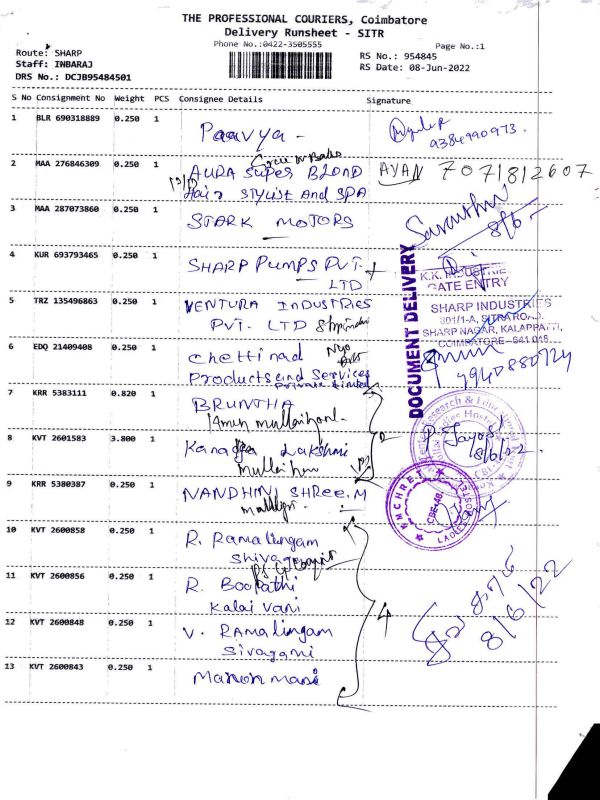 THE PROFESSIONAL COURIERS, Coimbatore
Delivery Runsheet - SITR
Phone No.:0422-3505555
Page No.:1
Route: SHARP
RS No.: 954845
Staff: INBARAJ
RS Date: 08-Jun-2022
DRS No.: DCJB95484501
S No Consignment No Weight PCS Consignee Details Signature
1 BLR 690318889 0.250 1 Paavya -
9384990973.
2 MAA 276846309 0.250 1 AURA Super BLOND AYAN 7071812607
Hair Stylist And SPA
3 MAA 287073860 0.250 1 STARK MOTORS
8/6-
4 KUR 693793465 0.250 1 SHARP PUMPS PVT.
LTD
DOCUMENT DELIVERY
K.K. INDUSTRIE
GATE ENTRY
5 TRZ 135496863 0.250 1 VENTURA INDUSTRIES
PVT. LTD
SHARP INDUSTRIES
801/1-A, SITRA ROAD,
SHARP NAGAR, KALAPPATTI,
COIMBATORE - 641 048
6 EDQ 21409408 0.250 1 Chettinad
Products and Services
Private Limited
9940880724
7 KRR 5383111 0.820 1 BRUNTHA
8 KVT 2601583 3.800 1 Kanaga Lakshmi
8/6/22
9 KRR 5380387 0.250 1 NANDHINI SHREE.M
KMCHRET
CBE-48
LADIES HOSTEL
10 KVT 2600858 0.250 1 R. Ramalingam
Shivagami
11 KVT 2600856 0.250 1 R. Boopathi
Kalaivani
4
8/6/22
12 KVT 2600848 0.250 1 V. Ramalingam
Sivagami
13 KVT 2600843 0.250 1 Manon mani